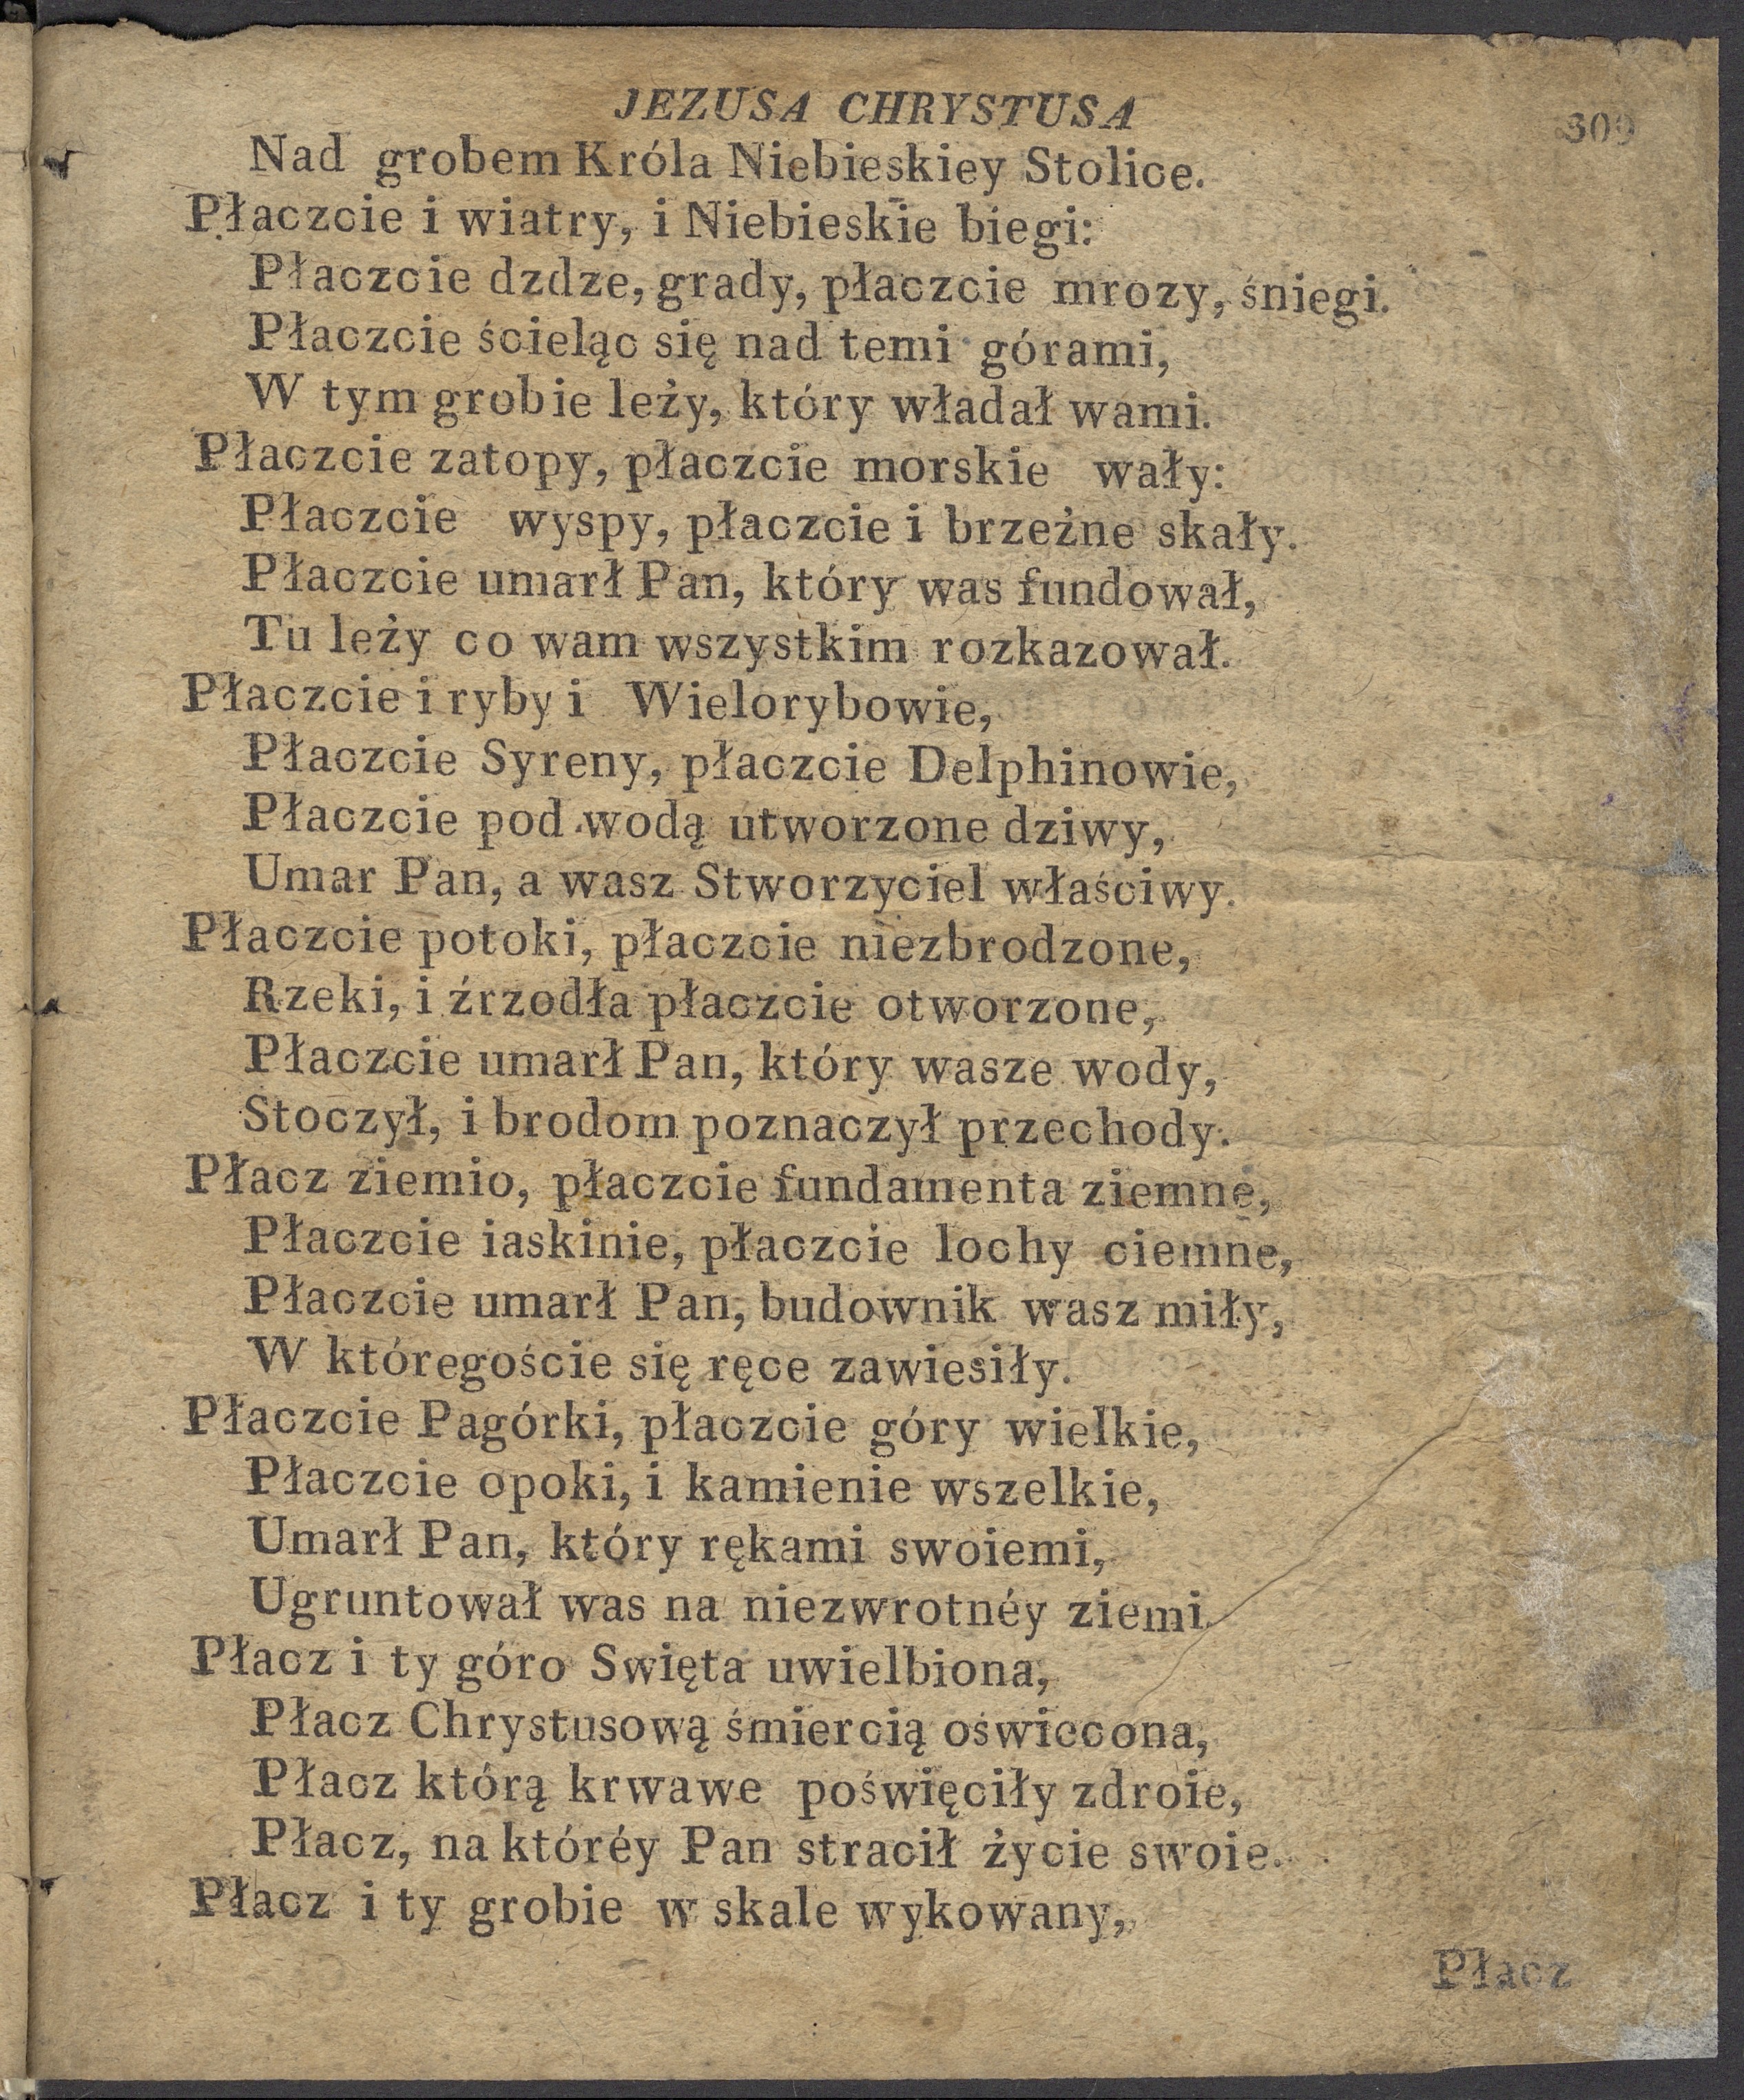 JEZUSA CHRYSTUSA 309
Nad grobem Króla Niebieskiey Stolice.
Płaczcie i wiatry, i Niebieskie biegi:
Płaczcie dzdze, grady, płaczcie mrozy, śniegi.
Płaczcie ścieląc się nad temi górami,
W tym grobie leży, który władał wami.
Płaczcie zatopy, płaczcie morskie wały:
Płaczcie wyspy, płaczcie i brzeżne skały.
Płaczcie umarł Pan, który was fundował,
Tu leży co wam wszystkim rozkazował.
Płaczcie i ryby i Wielorybowie,
Płaczcie Syreny, płaczcie Delphinowie,
Płaczcie pod wodą utworzone dziwy,
Umar Pan, a wasz Stworzyciel właściwy.
Płaczcie potoki, płaczcie niezbrodzone,
Rzeki, i źrzodła płaczcie otworzone,
Płaczcie umarł Pan, który wasze wody,
Stoczył, i brodom poznaczył przechody.
Płacz ziemio, płaczcie fundamenta ziemne,
Płaczcie iaskinie, płaczcie lochy ciemne,
Płaczcie umarł Pan, budownik wasz miły,
W któregoście się ręce zawiesiły.
Płaczcie Pagórki, płaczcie góry wielkie,
Płaczcie opoki, i kamienie wszelkie,
Umarł Pan, który rękami swoiemi,
Ugruntował was na niezwrotnéy ziemi.
Płacz i ty góro Swięta uwielbiona,
Płacz Chrystusową śmiercią oświccona,
Płacz którą krwawe poświęciły zdroie,
Płacz, na któréy Pan stracił życie swoie.
Płacz i ty grobie w skale wykowany,
Płacz